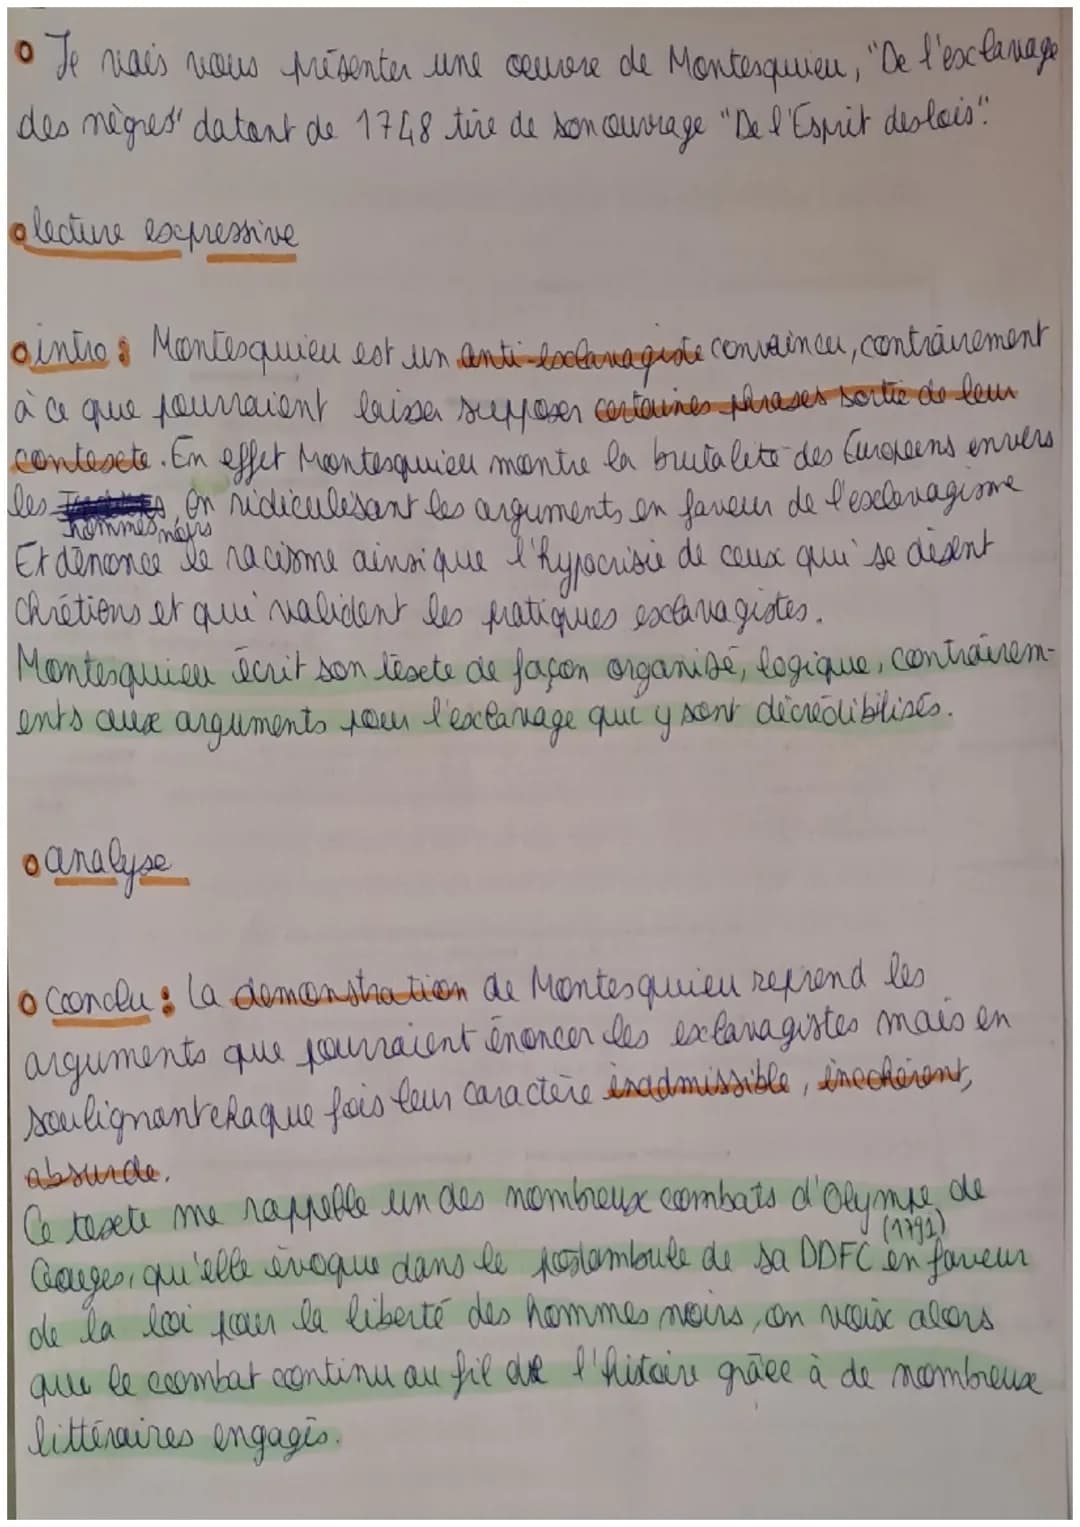 Je vais vous présenter une oeuvre de Montesquieu, "De l'esclavage
des nègres" datant de 1748 tire de son ouvrage "De l'Esprit des lois".
lecture expressive
intro : Montesquieu est un anti-esclavagiste convaincu, contrairement
à ce que pourraient laisser supposer certaines phrases sortie de leur
contexte. En effet Montesquieu montre la brutalité des Européens envers
les hommes noirs, en ridiculisant les arguments en faveur de l'esclavagisme
Et dénonce le racisme ainsi que l'hypocrisie de ceux qui se disent
chrétiens et qui valident les pratiques esclavagistes.
Montesquieu écrit son texte de façon organisé, logique, contrairem-
ents aux arguments pour l'esclavage qui y sont décrédibilisés.
analyse
conclu : La démonstration de Montesquieu reprend les
arguments que pourraient énoncer les esclavagistes mais en
soulignant chaque fois leur caractère inadmissible, incohérent,
absurde.
Ce texte me rappelle un des nombreux combats d'Olympe de
Gouges, qu'elle évoque dans le postambule de sa DDFC (1791) en faveur
de la loi pour la liberté des hommes noirs, on voix alors
que le combat continu au fil de l'histoire grâce à de nombreux
littéraires engagés.